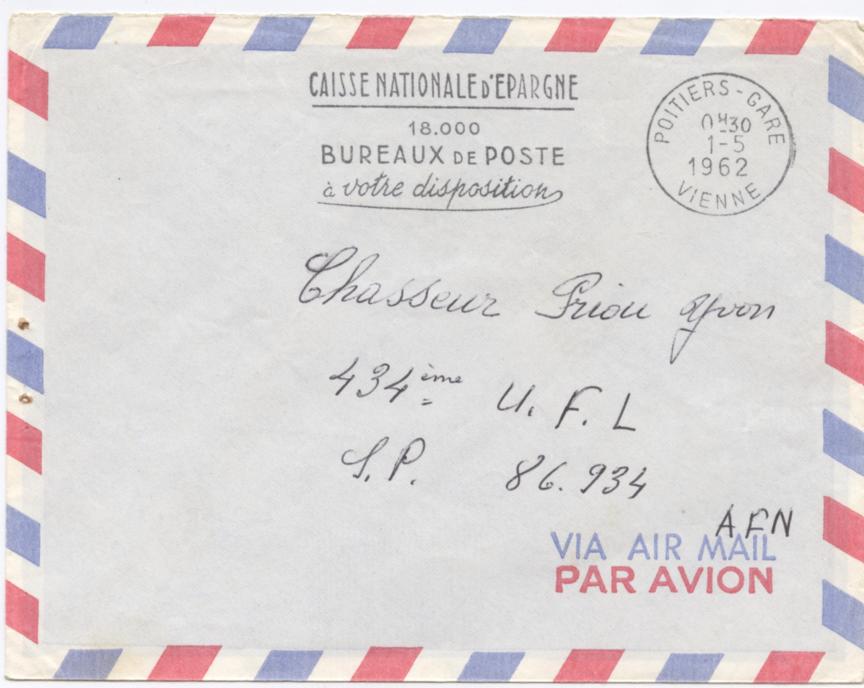 CAISSE NATIONALE D'EPARGNE
18.000
BUREAUX DE POSTE
à votre disposition
POITIERS-GARE
0H30
1-5
1962
VIENNE
Chasseur Priou Yvon
434ème U. F. L
S.P. 86.934
AFN
VIA AIR MAIL
PAR AVION